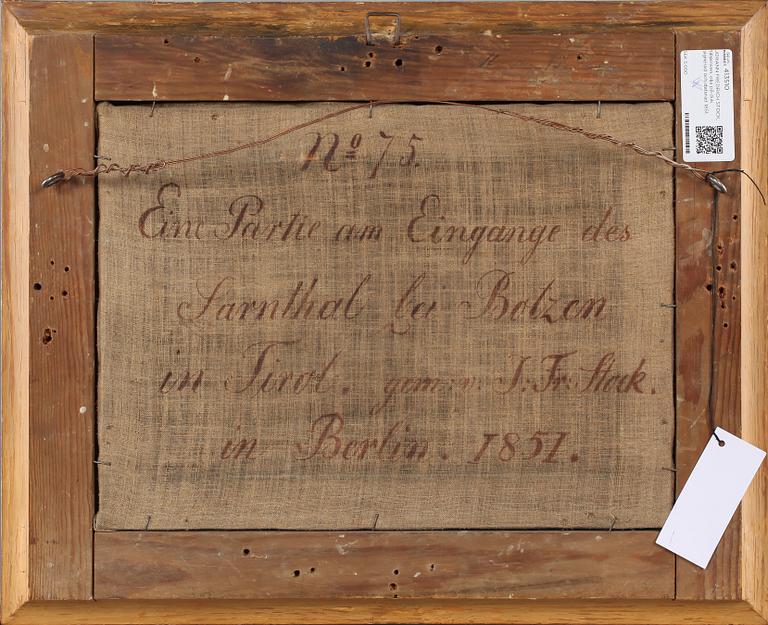 No 75.
Eine Partie am Eingange des
Sarnthal bei Botzen
in Tirol. gem: v. J: Fr: Stock.
in Berlin. 1851.
413510
JOHANN FRIEDRICH STOCK,